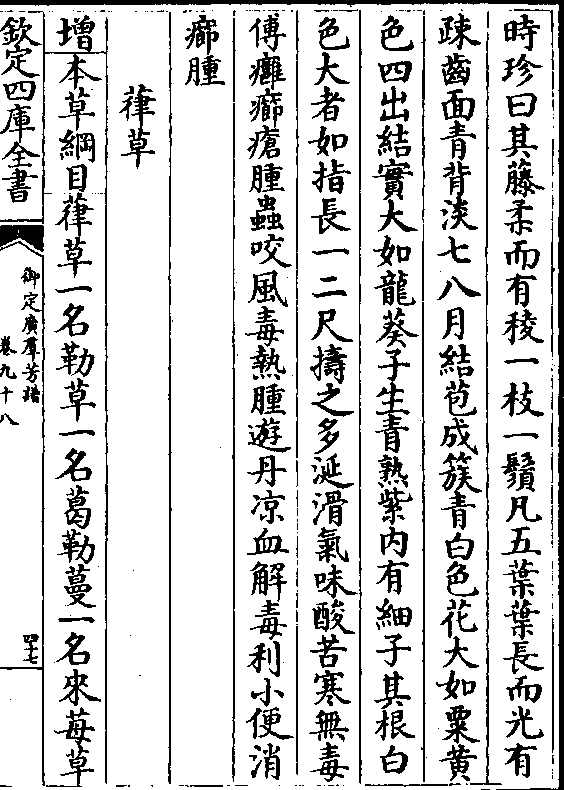 時珍曰其藤柔而有稜一枝一鬚凡五葉葉長而光有
疎齒面青背淡七八月結苞成簇青白色花大如粟黃
色四出結實大如龍葵子生青熟紫內有細子其根白
色大者如指長一二尺擣之多涎滑氣味酸苦寒無毒
傅癰癤瘡腫蟲咬風毒熱腫遊丹凉血解毒利小便消
癤腫
葎草
增本草綱目葎草一名勒草一名葛勒蔓一名來莓草
欽定四庫全書
御定廣羣芳譜
卷九十八
四十七